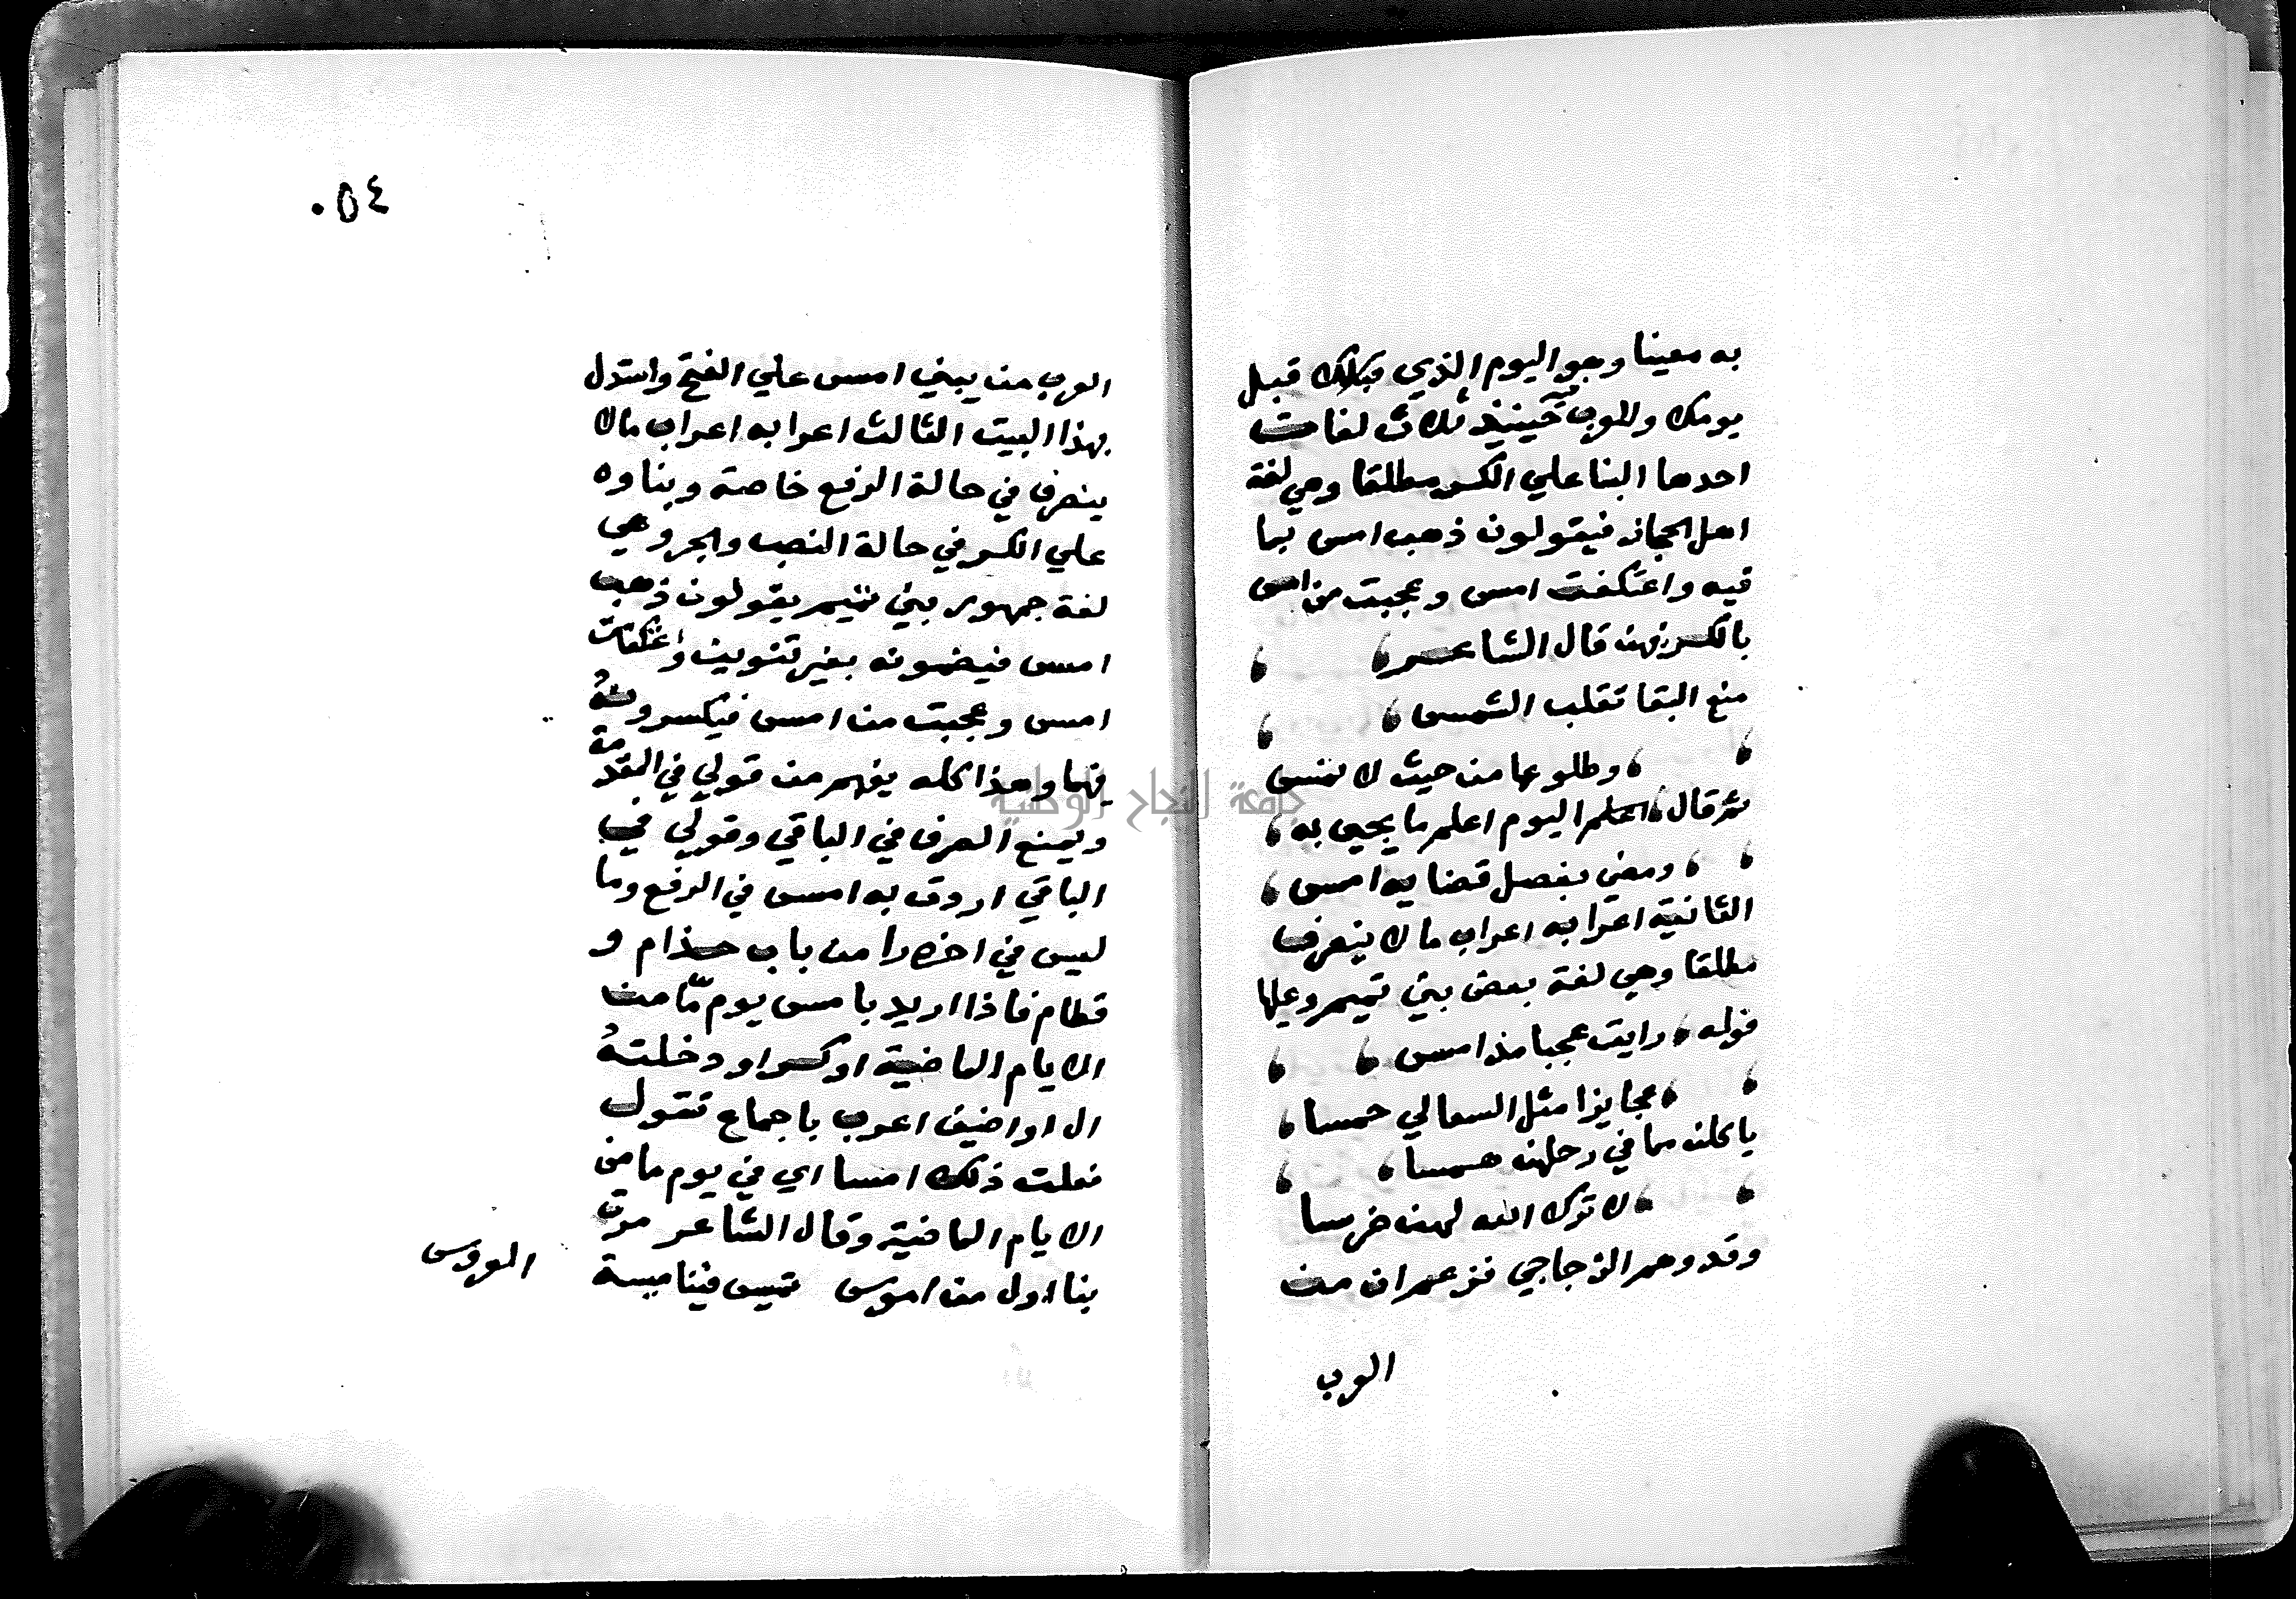 به معينا وهو اليوم الذي قبلك قبل
يومك وللعرب حينيذ ثلاث لغات
احدها البنا علي الكسر مطلقا وهي لغة
اهل الحجاز فيقولون ذهب امس بما
فيه واعتكفت امس وعجبت من امس
بالكسر فيهن قال الشاعر
منع البقا تقلب الشمس
وطلوعها من حيث لا تمسى
ثم قال اليوم اعلم ما يجيى به
ومضي بفصل قضايه امس
الثانية اعرابه اعراب مالا ينصرف
مطلقا وهي لغة بعض بني تميم وعليها
قوله رايت عجبا مذ امس
عجايزا مثل السعالي خمسا
ياكلن ما في رحلهن همسا
لا ترك الله لهن ضرسا
وقد وهم الزجاجي فزعم ان من
العرب
٠٥٤
العرب من يبني امس علي الفتح واستدل
بهذا البيت الثالث اعرابه اعراب مالا
ينصرف في حالة الرفع خاصة وبناوه
علي الكسر في حالة النصب والجر وهي
لغة جمهور بني تميم يقولون ذهب
امس فيضمونه بغير تنوين واعتكفت
امس وعجبت من امس فيكسرونه
فيهما وهذا كله يفهم من قولي في المقدمة
ويمنع الصرف في الباقي وقولي في
الباقي اردت به امس في الرفع وما
ليس في اخره را من باب حذام و
قطام فاذا اريد بامس يوم مّا من
الايام الماضية او كسر او دخلته
ال او اضيف اعرب باجماع تقول
فعلت ذلك امسا اي في يوم ما من
الايام الماضية وقال الشاعر مرت
بنا اول من اموس تميس فينا ميسة
العروس
جامعة النجاح الوطنية